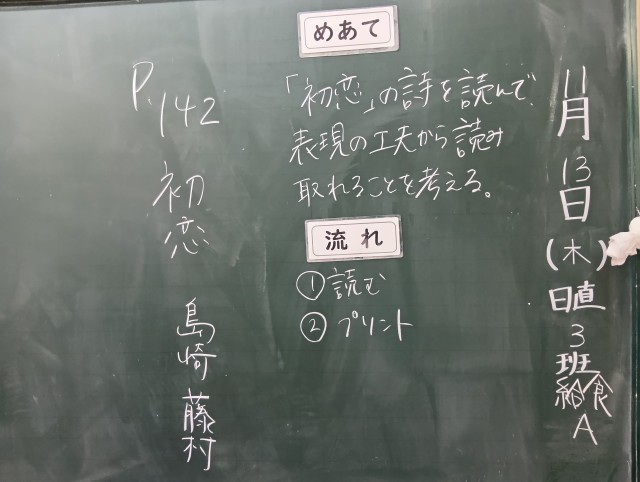 11月13日(木)
日直3班
給食A
めあて
「初恋」の詩を読んで、
表現の工夫から読み
取れることを考える。
流れ
①読む
②プリント
P.142
初恋
島崎藤村